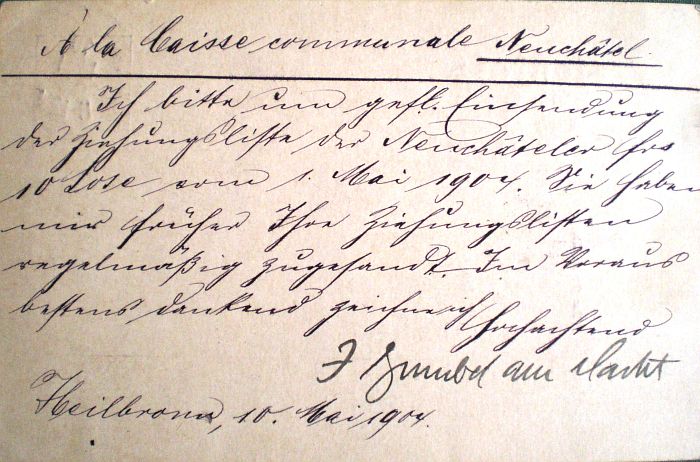 À la Caisse communale Neuchâtel.
Ich bitte um gefl. Einsendung
der Ziehungsliste der Neuchâteler frs
10 Lose vom 1. Mai 1904. Sie haben
mir früher Ihre Ziehungslisten
regelmäßig zugesandt. Im Voraus
bestens dankend zeichne ich hochachtend
J Gumbel am Markt
Heilbronn, 10. Mai 1904.